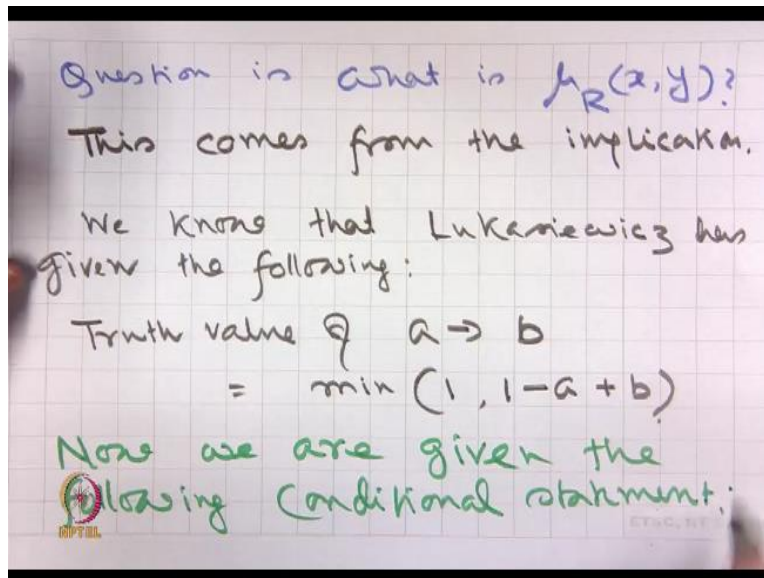 Question is what is μ_R(x, y)?
This comes from the implication.
We know that Lukasiewicz has
given the following:
Truth value of a → b
= min (1, 1-a+b)
Now we are given the
following conditional statement:
NPTEL